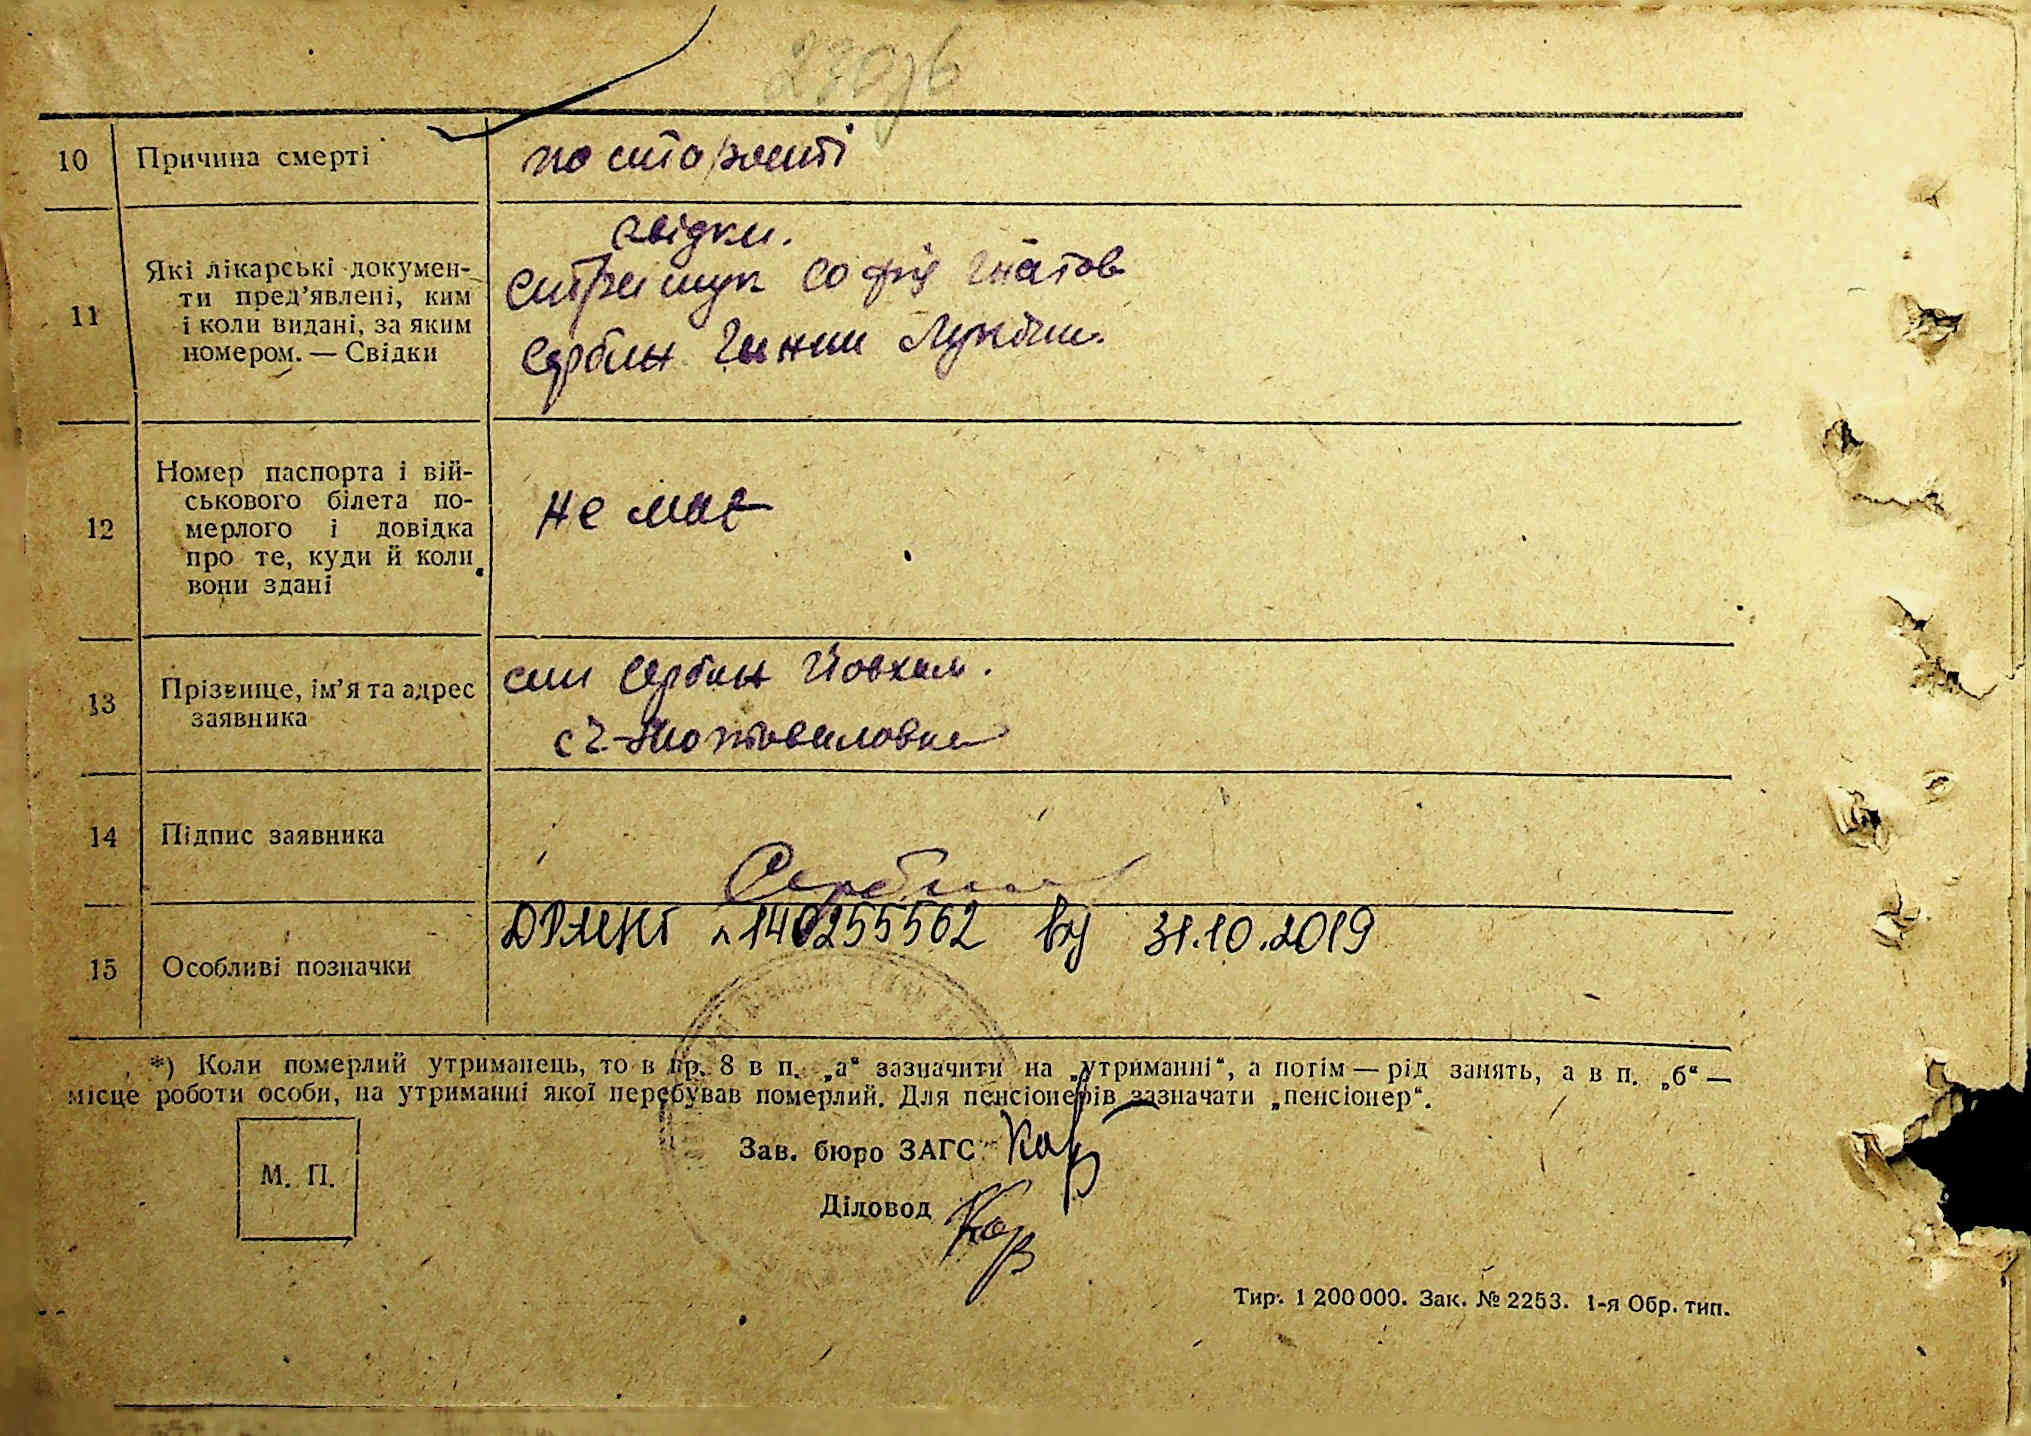 10 Причина смерті по старості
свідки.
11 Які лікарські докумен-
ти пред’явлені, ким
і коли видані, за яким
номером. — Свідки
Софія Гнатов
Сербин Ганни
12 Номер паспорта і вій-
ськового білета по-
мерлого і довідка
про те, куди й коли
вони здані
не має
13 Прізвище, ім’я та адрес
заявника
син Сербин Йовхим.
14 Підпис заявника
Сербин
15 Особливі позначки
№140255562 від 31.10.2019
*) Коли померлий утриманець, то в гр. 8 в п. „а“ зазначити на „утриманні“, а потім — рід занять, а в п. „б“ —
місце роботи особи, на утриманні якої перебував померлий. Для пенсіонерів зазначати „пенсіонер“.
М. П.
Зав. бюро ЗАГС
Діловод
Тир. 1 200 000. Зак. № 2253. 1-я Обр. тип.